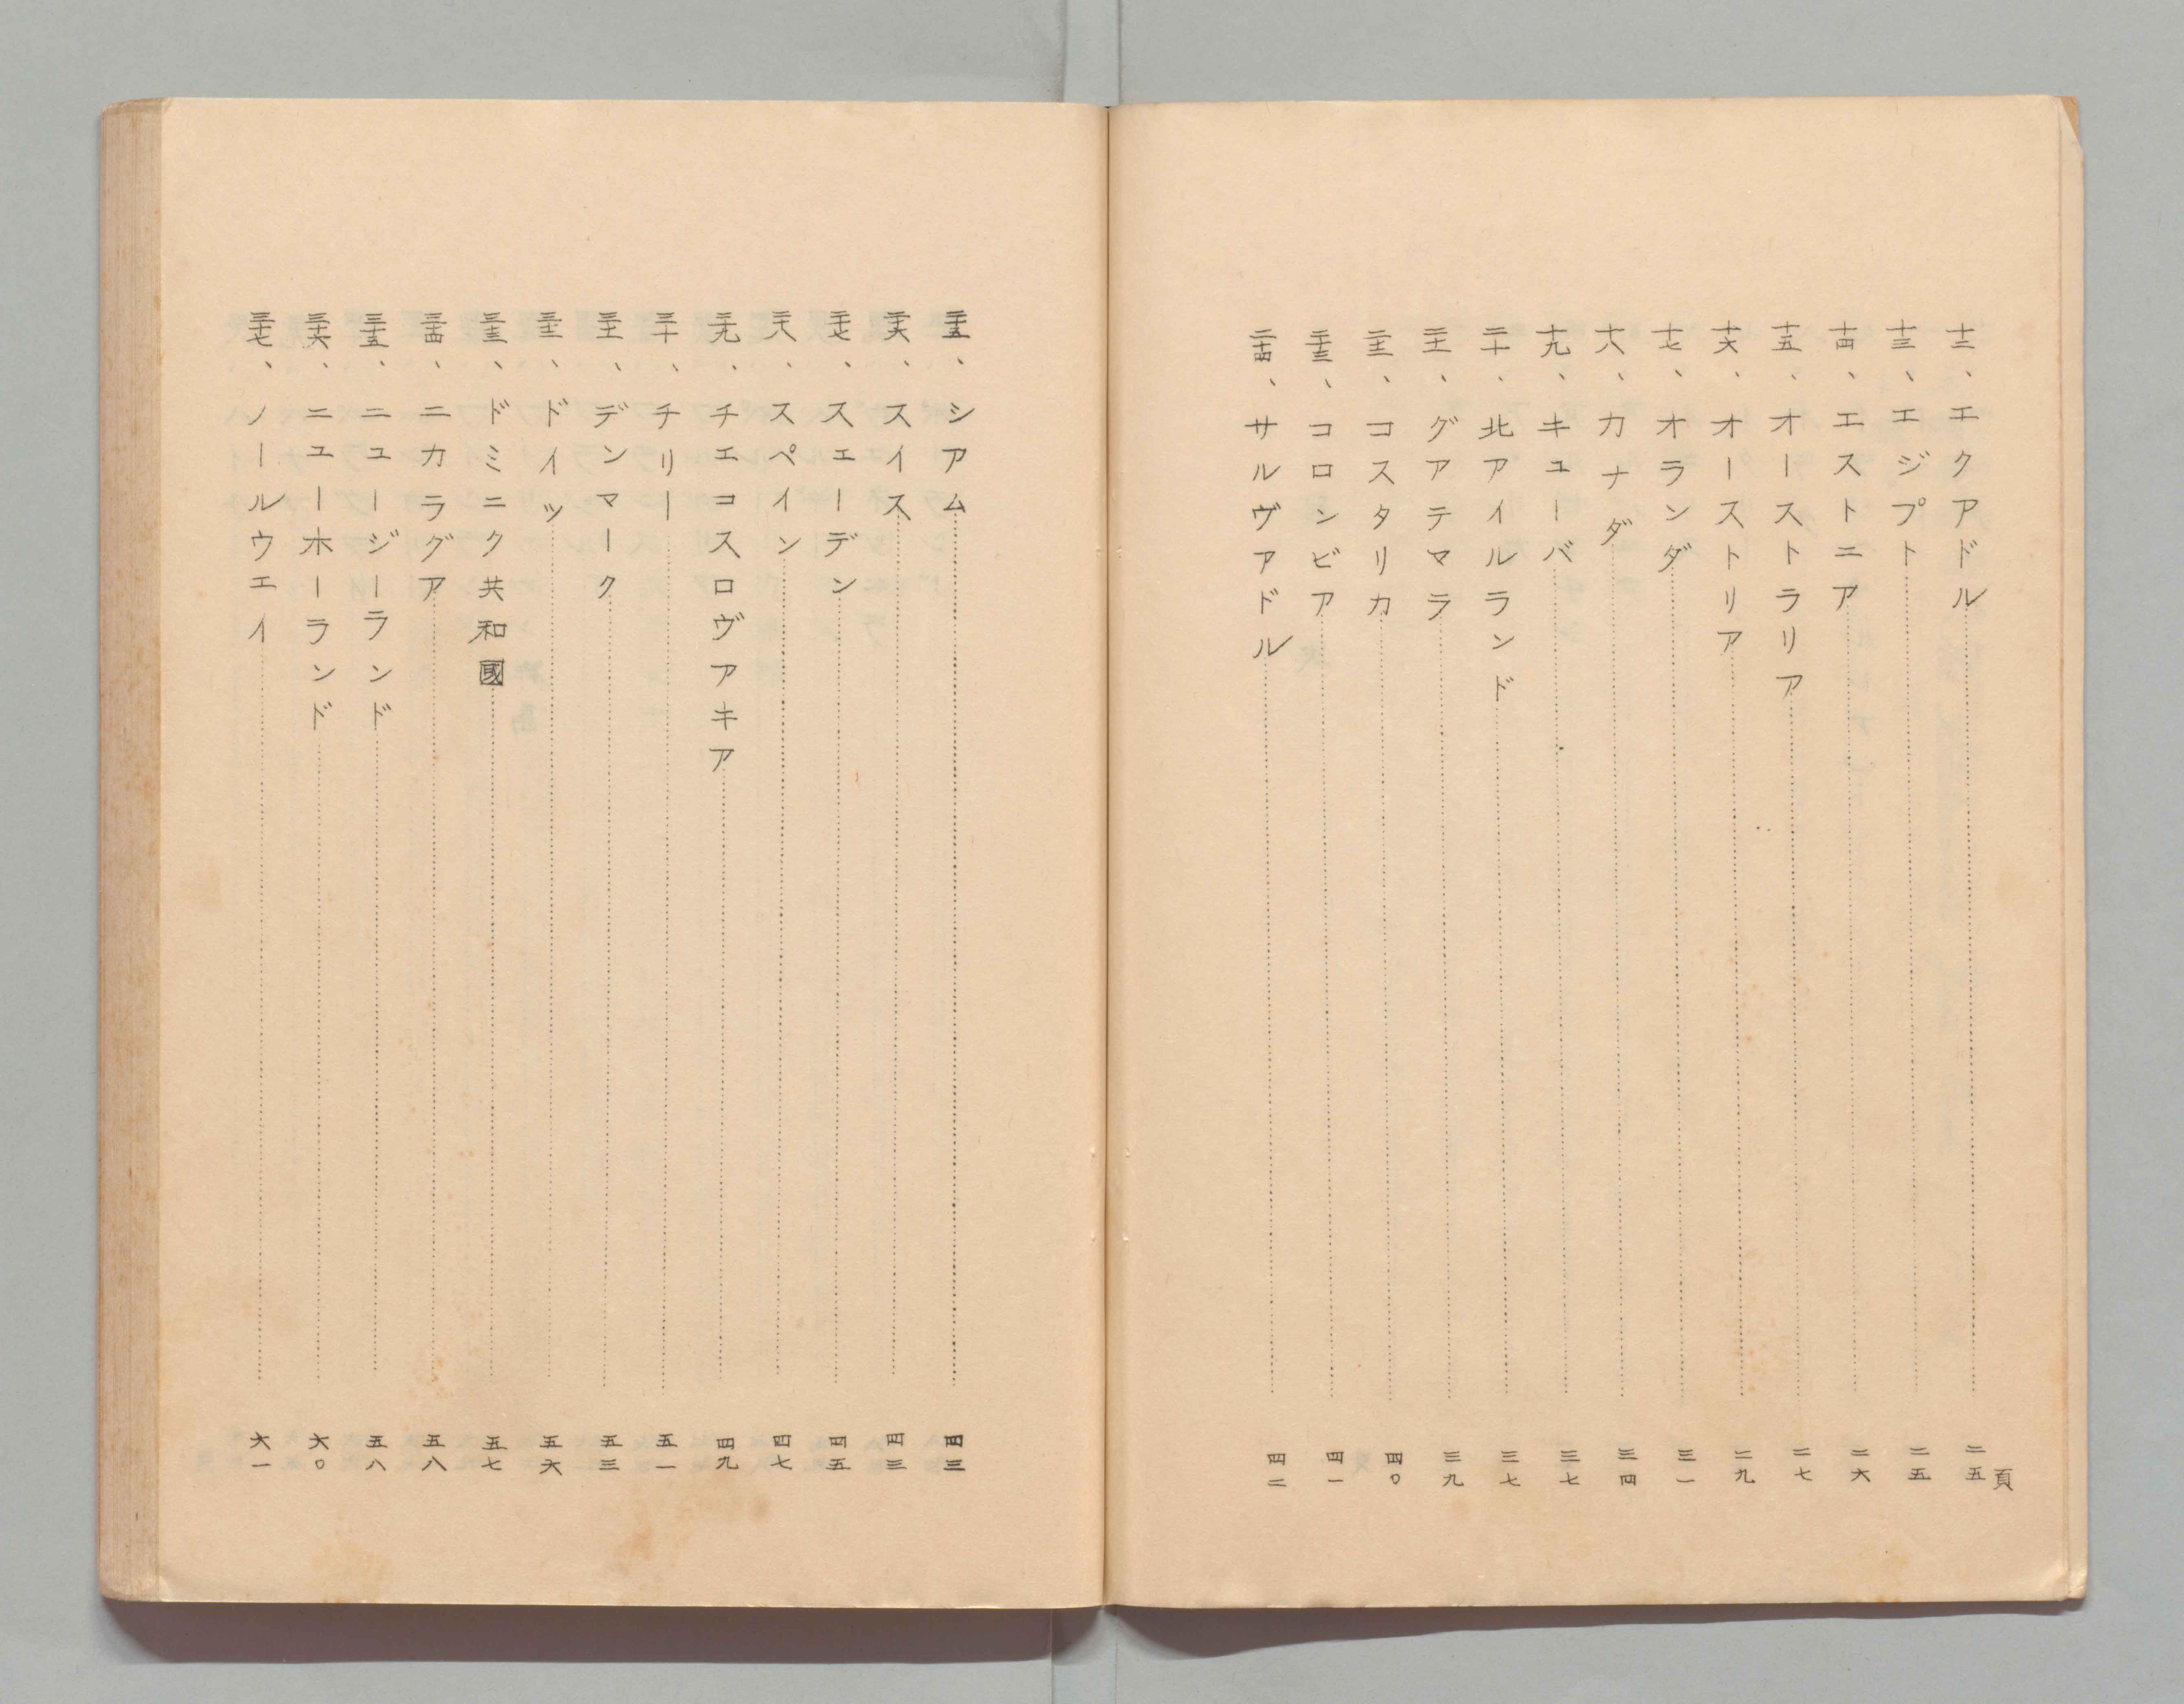 頁
十二、エクアドル……二五
十三、エジプト……二五
十四、エストニア……二六
十五、オーストラリア……二七
十六、オーストリア……二九
十七、オランダ……三一
十八、カナダ……三四
十九、キューバ……三七
二十、北アイルランド……三七
二十一、グアテマラ……三九
二十二、コスタリカ……四〇
二十三、コロンビア……四一
二十四、サルヴアドル……四二
二十五、シアム……四三
二十六、スイス……四三
二十七、スエーデン……四五
二十八、スペイン……四七
二十九、チエコスロヴアキア……四九
三十、チリー……五一
三十一、デンマーク……五三
三十二、ドイツ……五六
三十三、ドミニク共和國……五七
三十四、ニカラグア……五八
三十五、ニュージーランド……五八
三十六、ニューホーランド……六〇
三十七、ノールウエイ……六一